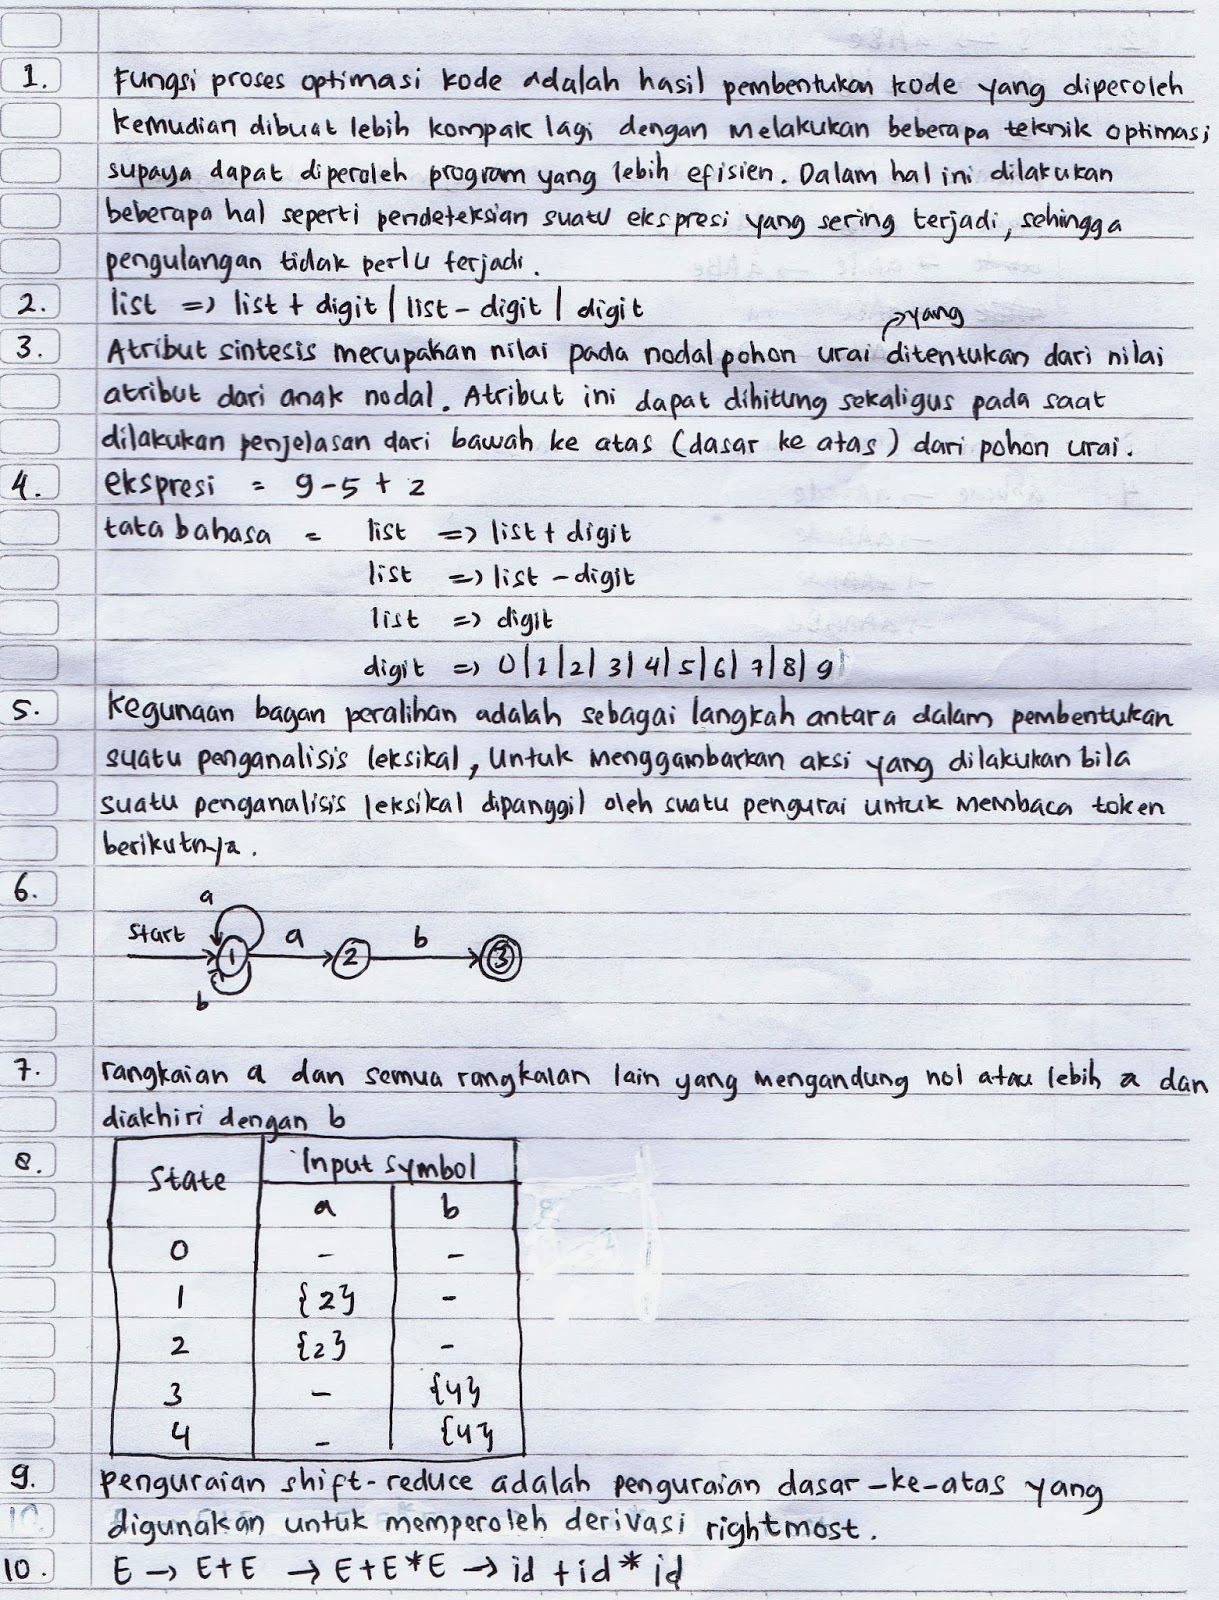 1. Fungsi proses optimasi kode adalah hasil pembentukan kode yang diperoleh
kemudian dibuat lebih kompak lagi dengan melakukan beberapa teknik optimasi
supaya dapat diperoleh program yang lebih efisien. Dalam hal ini dilakukan
beberapa hal seperti pendeteksian suatu ekspresi yang sering terjadi, sehingga
pengulangan tidak perlu terjadi.
2. list => list + digit | list - digit | digit
yang
3. Atribut sintesis merupakan nilai pada nodal pohon urai ditentukan dari nilai
atribut dari anak nodal. Atribut ini dapat dihitung sekaligus pada saat
dilakukan penjelasan dari bawah ke atas (dasar ke atas) dari pohon urai.
4. ekspresi = 9-5 + 2
tata bahasa = list => list + digit
list => list - digit
list => digit
digit => 0|1|2|3|4|5|6|7|8|9|
5. Kegunaan bagan peralihan adalah sebagai langkah antara dalam pembentukan
suatu penganalisis leksikal, Untuk menggambarkan aksi yang dilakukan bila
suatu penganalisis leksikal dipanggil oleh suatu pengurai untuk membaca token
berikutnya.
6.
a
start 1 a 2 b 3
b
7. rangkaian a dan semua rangkaian lain yang mengandung nol atau lebih a dan
diakhiri dengan b
8. State Input symbol
a b
0 - -
1 {2} -
2 {2} -
3 - {4}
4 - {4}
9. penguraian shift-reduce adalah penguraian dasar-ke-atas yang
digunakan untuk memperoleh derivasi rightmost.
10. E → E+E → E+E*E → id + id * id